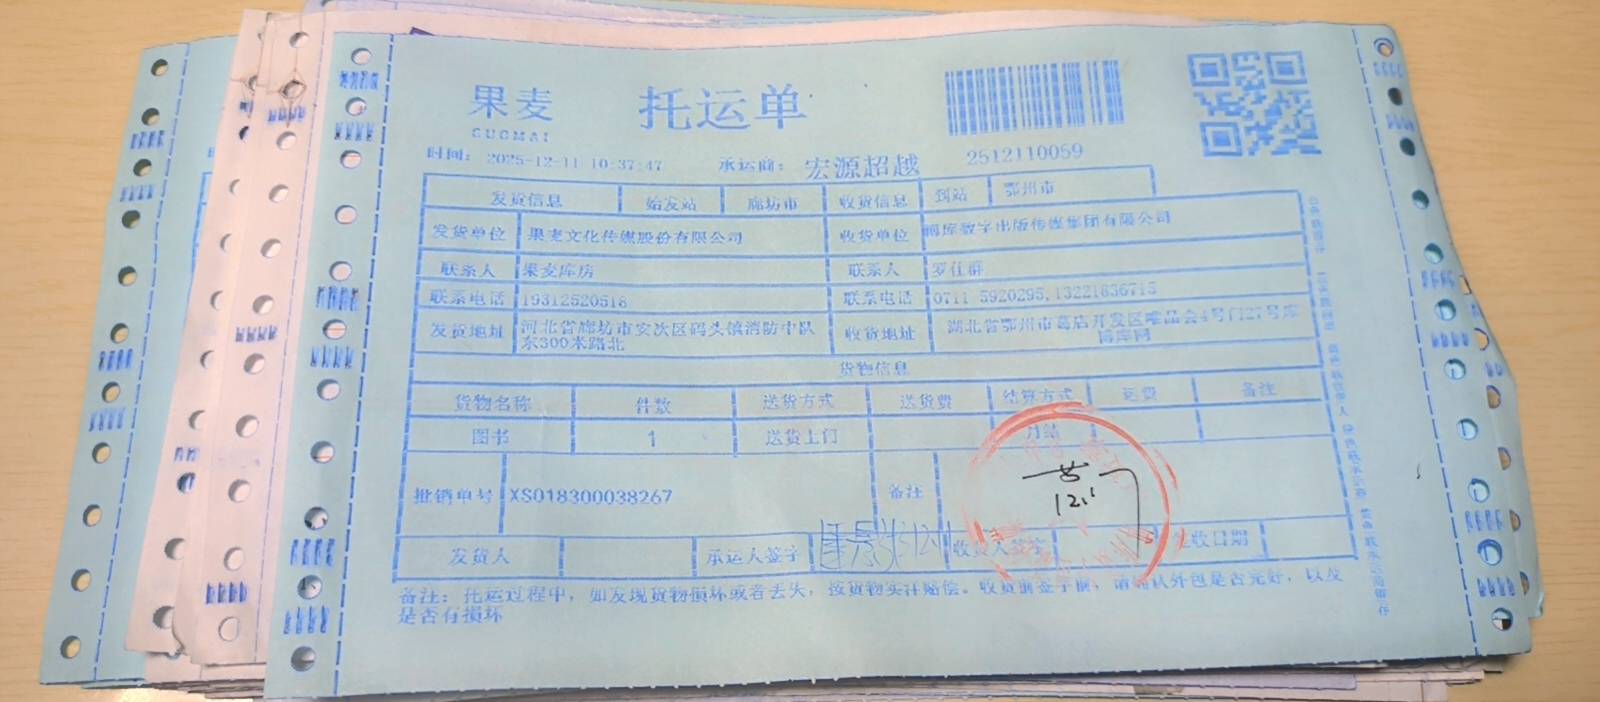 果麦
GUOMAI
托运单
时间: 2025-12-11 10:37:47
承运商: 宏源超越
2512110059
发货信息 始发站 廊坊市 收货信息 到站 鄂州市
发货单位 果麦文化传媒股份有限公司 收货单位 博库数字出版传媒集团有限公司
联系人 果麦库房 联系人 罗仕群
联系电话 19312520518 联系电话 0711-5920295,13221836715
发货地址 河北省廊坊市安次区码头镇消防中队 收货地址 湖北省鄂州市葛店开发区唯品会4号门27号库
东300米路北 博库网
货物信息
货物名称 件数 送货方式 送货费 结算方式 运费 备注
图书 1 送货上门 月结
批销单号 XS018300038267 备注
12.1
发货人 承运人签字 收货人签字 签收日期
备注: 托运过程中, 如发现货物损坏或者丢失, 按货物实洋赔偿。收货前签字前, 请确认外包是否完好, 以及
是否有损坏